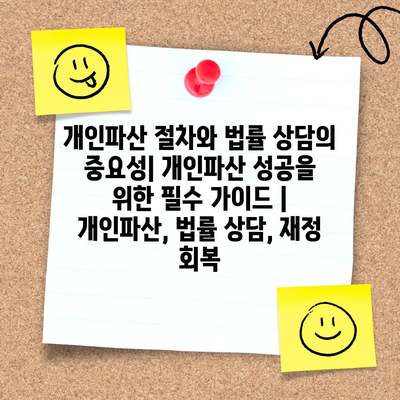 개인파산 절차와 법률 상담의
중요성| 개인파산 성공을
위한 필수 가이드 |
개인파산, 법률 상담, 재정
회복